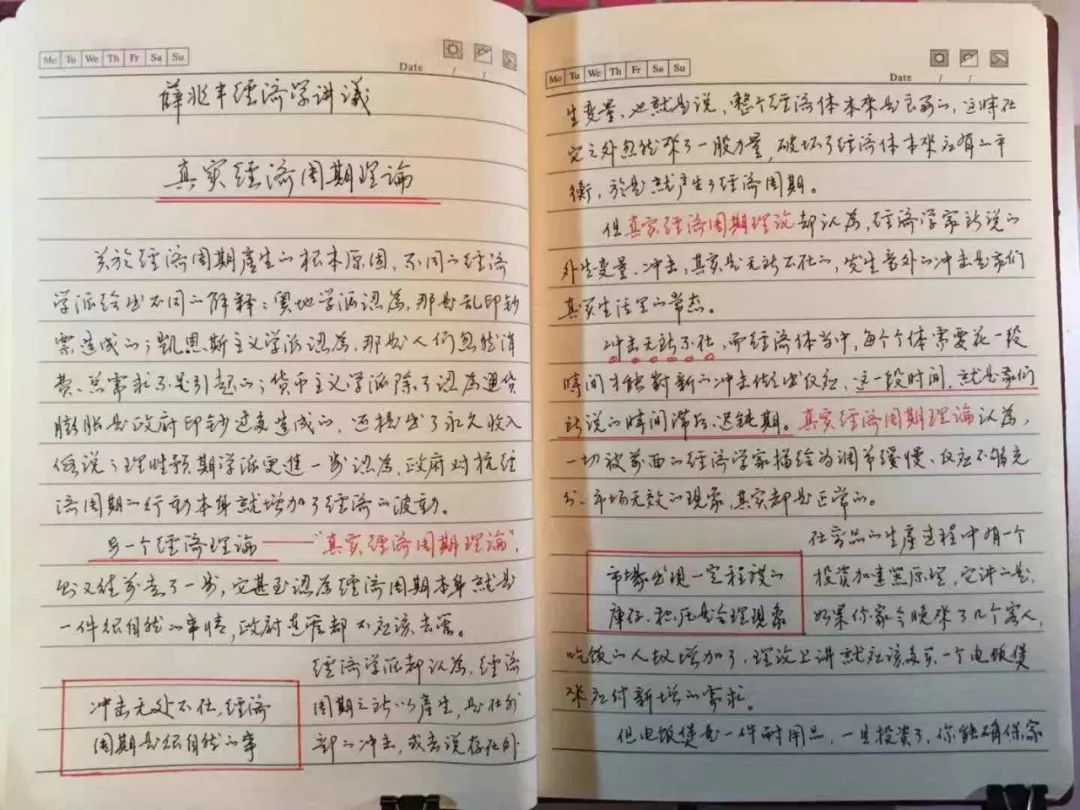 Mo Tu We Th Fr Sa Su
Date / /
薛兆丰经济学讲议
真实经济周期理论
关於经济周期產生的根本原因，不同的经济
学派给出不同的解释：奥地学派認為，那是乱印钞
票造成的；凯恩斯主义学派認為，那是人们忽然消
费、总需求不足引起的；货币主义学派除了認為通货
膨胀是政府印钞过多造成的，还提出了永久收入
假说；理性预期学派更進一步認為，政府对抗经
济周期的行動本身就增加了经济的波動。
另一个经济理論——“真实经济周期理論”，
则又往前走了一步，它甚至認為经济周期本身就是
一件很自然的事情，政府連管都不应該去管。
经济学派都认為，经济
周期之所以产生，是在外
部的冲击，或者说存在外
冲击无处不在，经济
周期是很自然的事
Mo Tu We Th Fr Sa Su
Date / /
生变量，也就是说，整个经济体本来是良好的，这時在
它之外忽然来了一股力量，破坏了经济体本来应有的平
衡，於是就产生了经济周期。
但真实经济周期理论却认為，经济学家所说的
外生变量、冲击，其实是无所不在的，发生意外的冲击是我们
真实生活里的常态。
冲击无所不在，而经济体当中，每个个体需要花一段
時间才能對新的冲击做出反应，这一段时间，就是我们
所说的時间滞后、迟钝期。真实经济周期理論认為，
一切被前面的经济学家描绘为调节缓慢、反应不够充
分、市场无效的现象，其实都是正常的。
在商品的生產过程中有一个
投资加速器原理，它讲的是，
如果你家今晚来了几个客人，
市場出现一定程度的
庫存、积压是合理现象
吃饭的人数增加了，理论上讲就应该多买一个电饭煲
来应付新增的需求。
但电饭煲是一件耐用品，一旦投资了，你能确保家